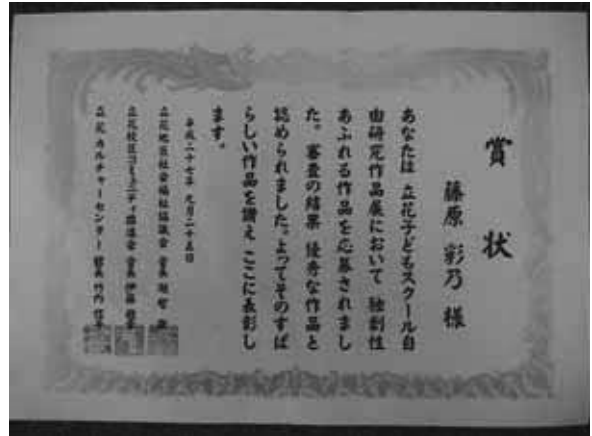 賞状
藤原 彩乃 様
あなたは 立花子どもスクール自
由研究作品展において 独創性
あふれる作品を応募されまし
た。審査の結果 優秀な作品と
認められました。よってそのすば
らしい作品を讃え ここに表彰し
ます。
平成二十七年 九月二十五日
立花地区社会福祉協議会 会長
立花校区コミュニティ推進会 会長 伊藤
立花カルチャーセンター 館長 竹内